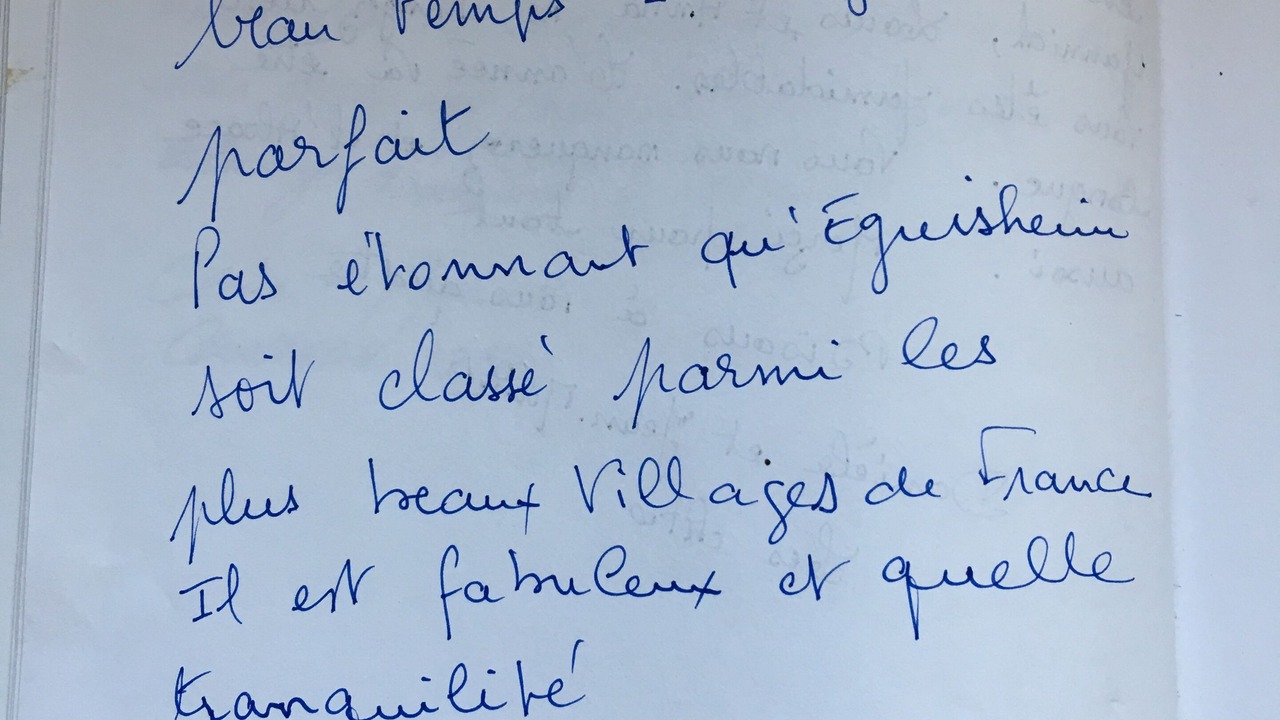 beau temps
parfait
Pas étonnant qu'Eguisheim
soit classé parmi les
plus beaux Villages de France
Il est fabuleux et quelle
tranquilité